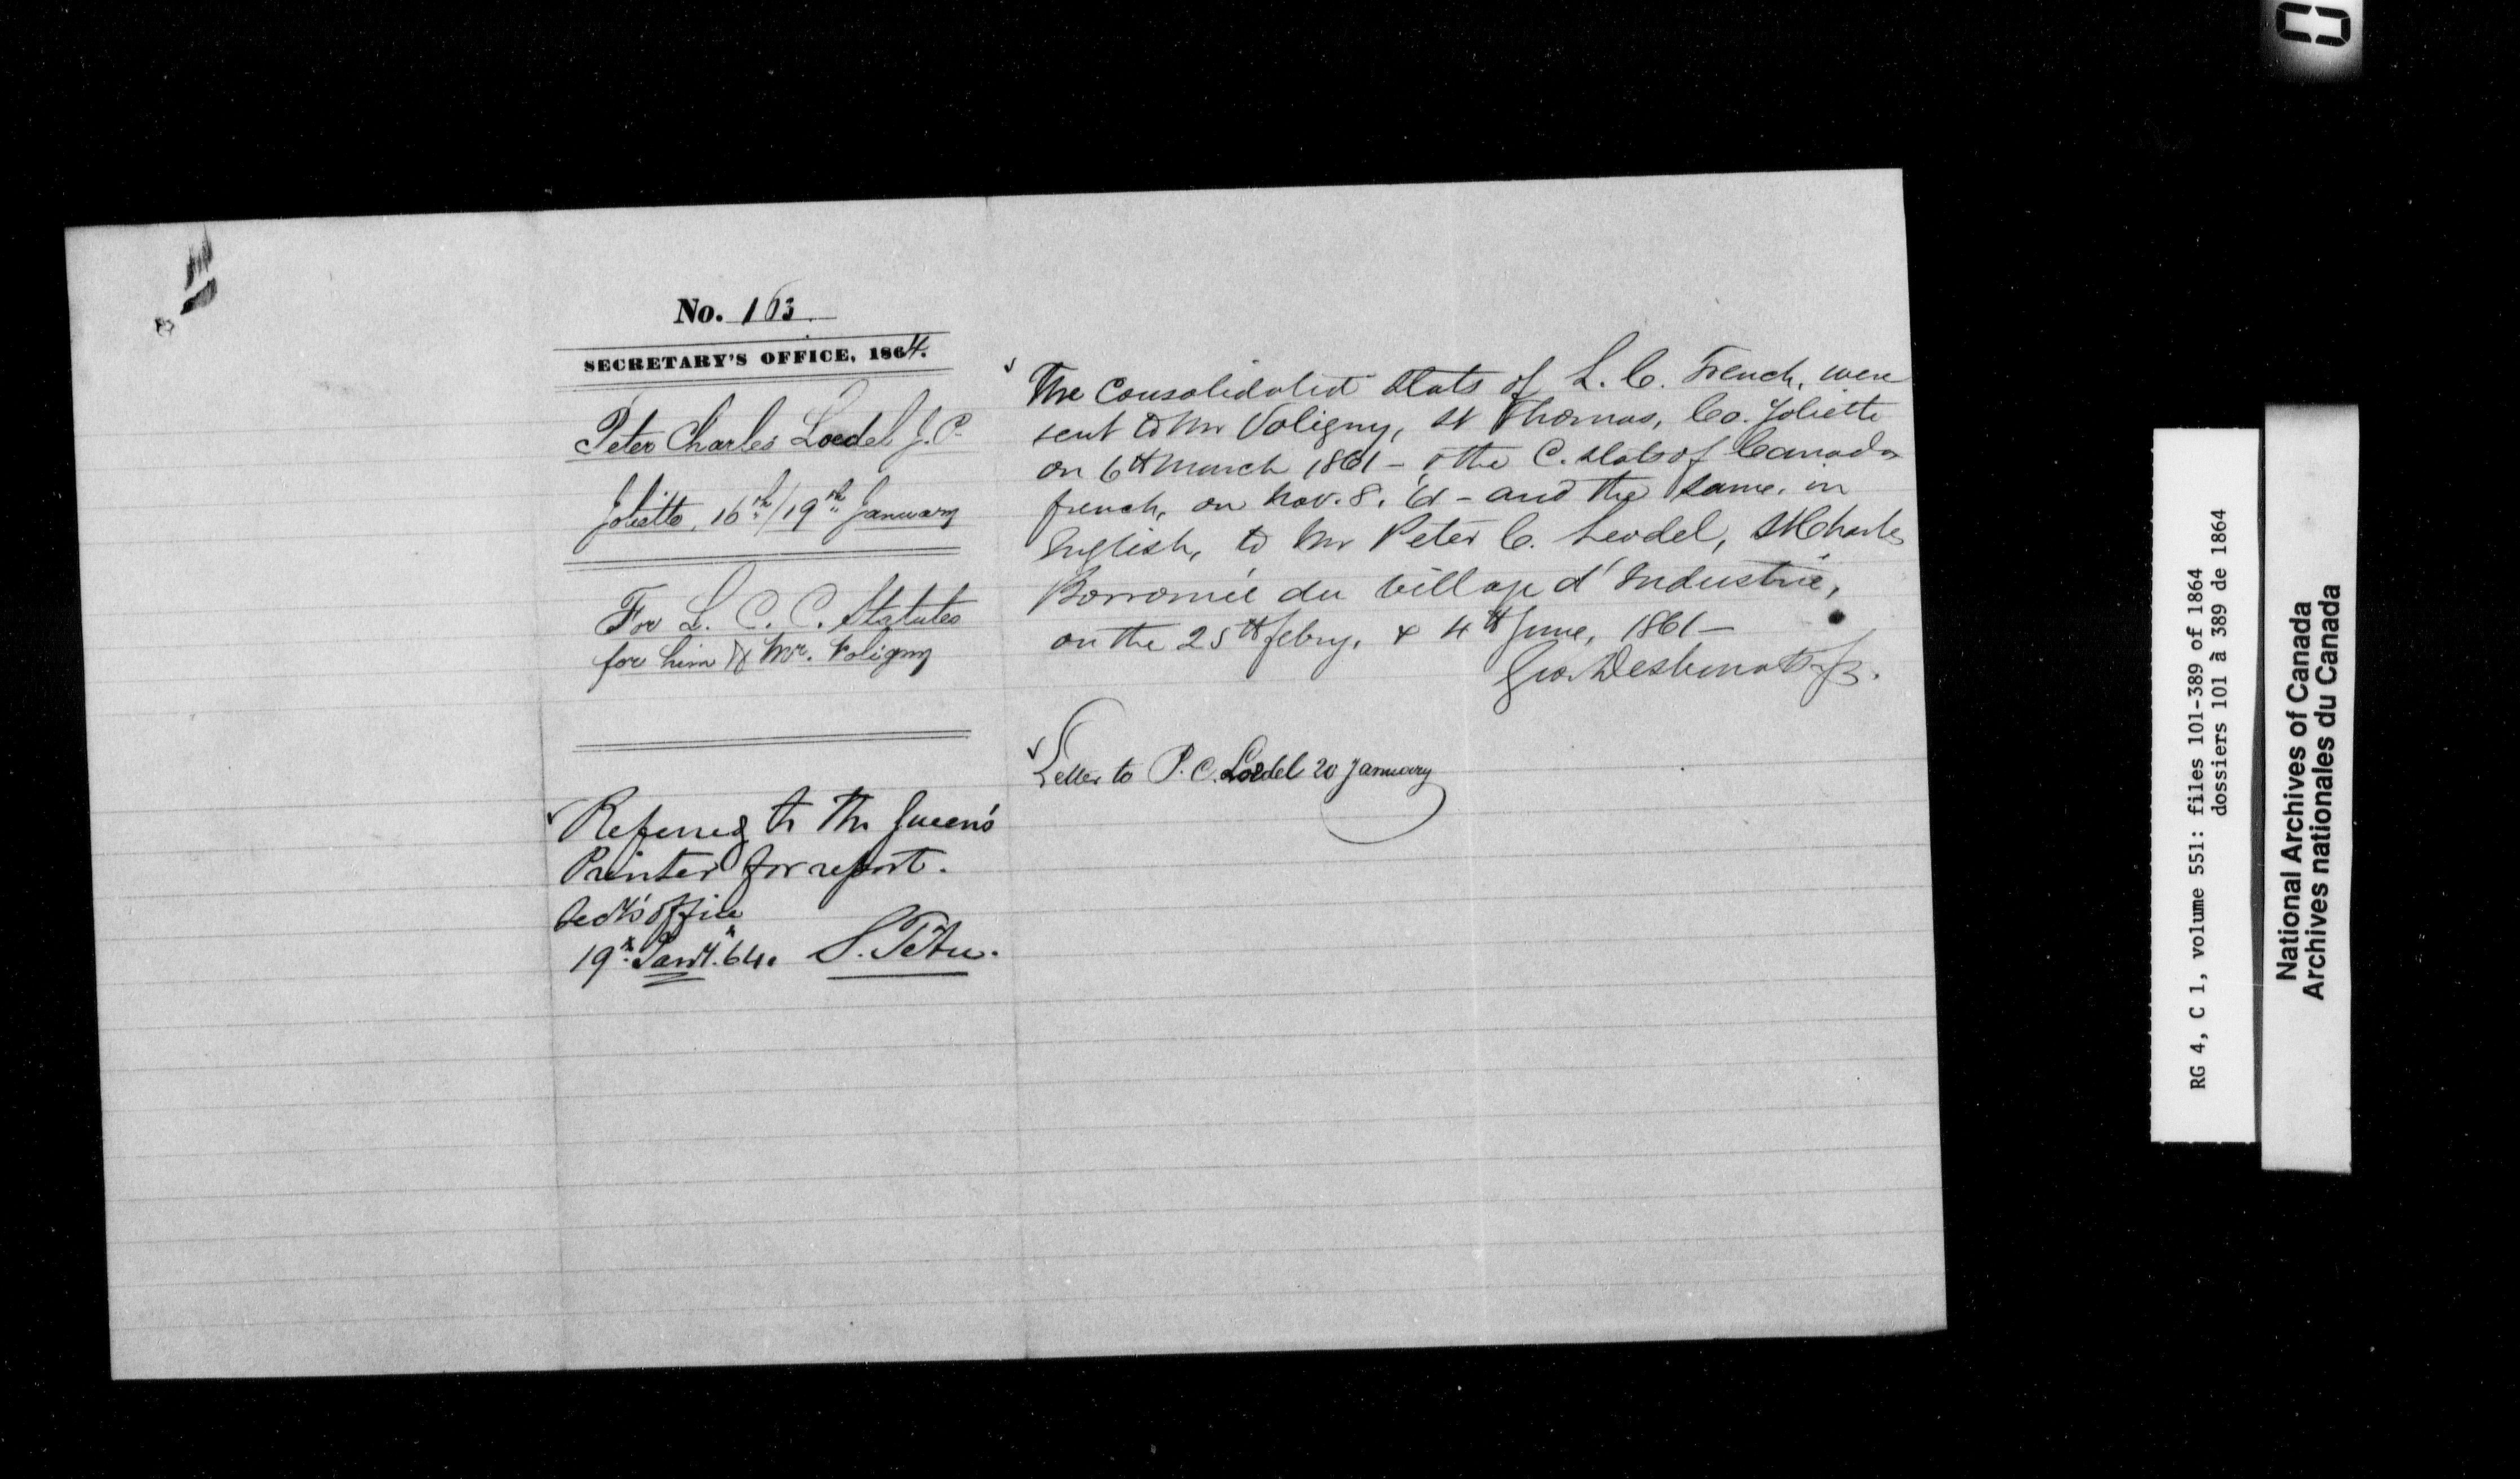 No. 163
SECRETARY'S OFFICE, 1864.
Peter Charles Loedel J.P.
Joliette, 16th/19th January
For L. C. C. Statutes
for him & Mr. Voligny
Referred to the Queen's
Printer for report.
Secy's office
19th Jany. 64. S. Tetu.
The Consolidated Stats of L. C. French, were
sent to Mr Voligny, St Thomas, Co. Joliette
on 6th March 1861 - & the C. Stats of Canada
french, on Nov. 8. '61 - and the same, in
English, to Mr Peter C. Leodel, St Charles
Borromée du village d'Industrie,
on the 25th febry. & 4th June, 1861 -
Geo. Desbarats
Letter to P. C. Loedel 20 January
RG 4, C 1, volume 551: files 101-389 of 1864
dossiers 101 à 389 de 1864
National Archives of Canada
Archives nationales du Canada